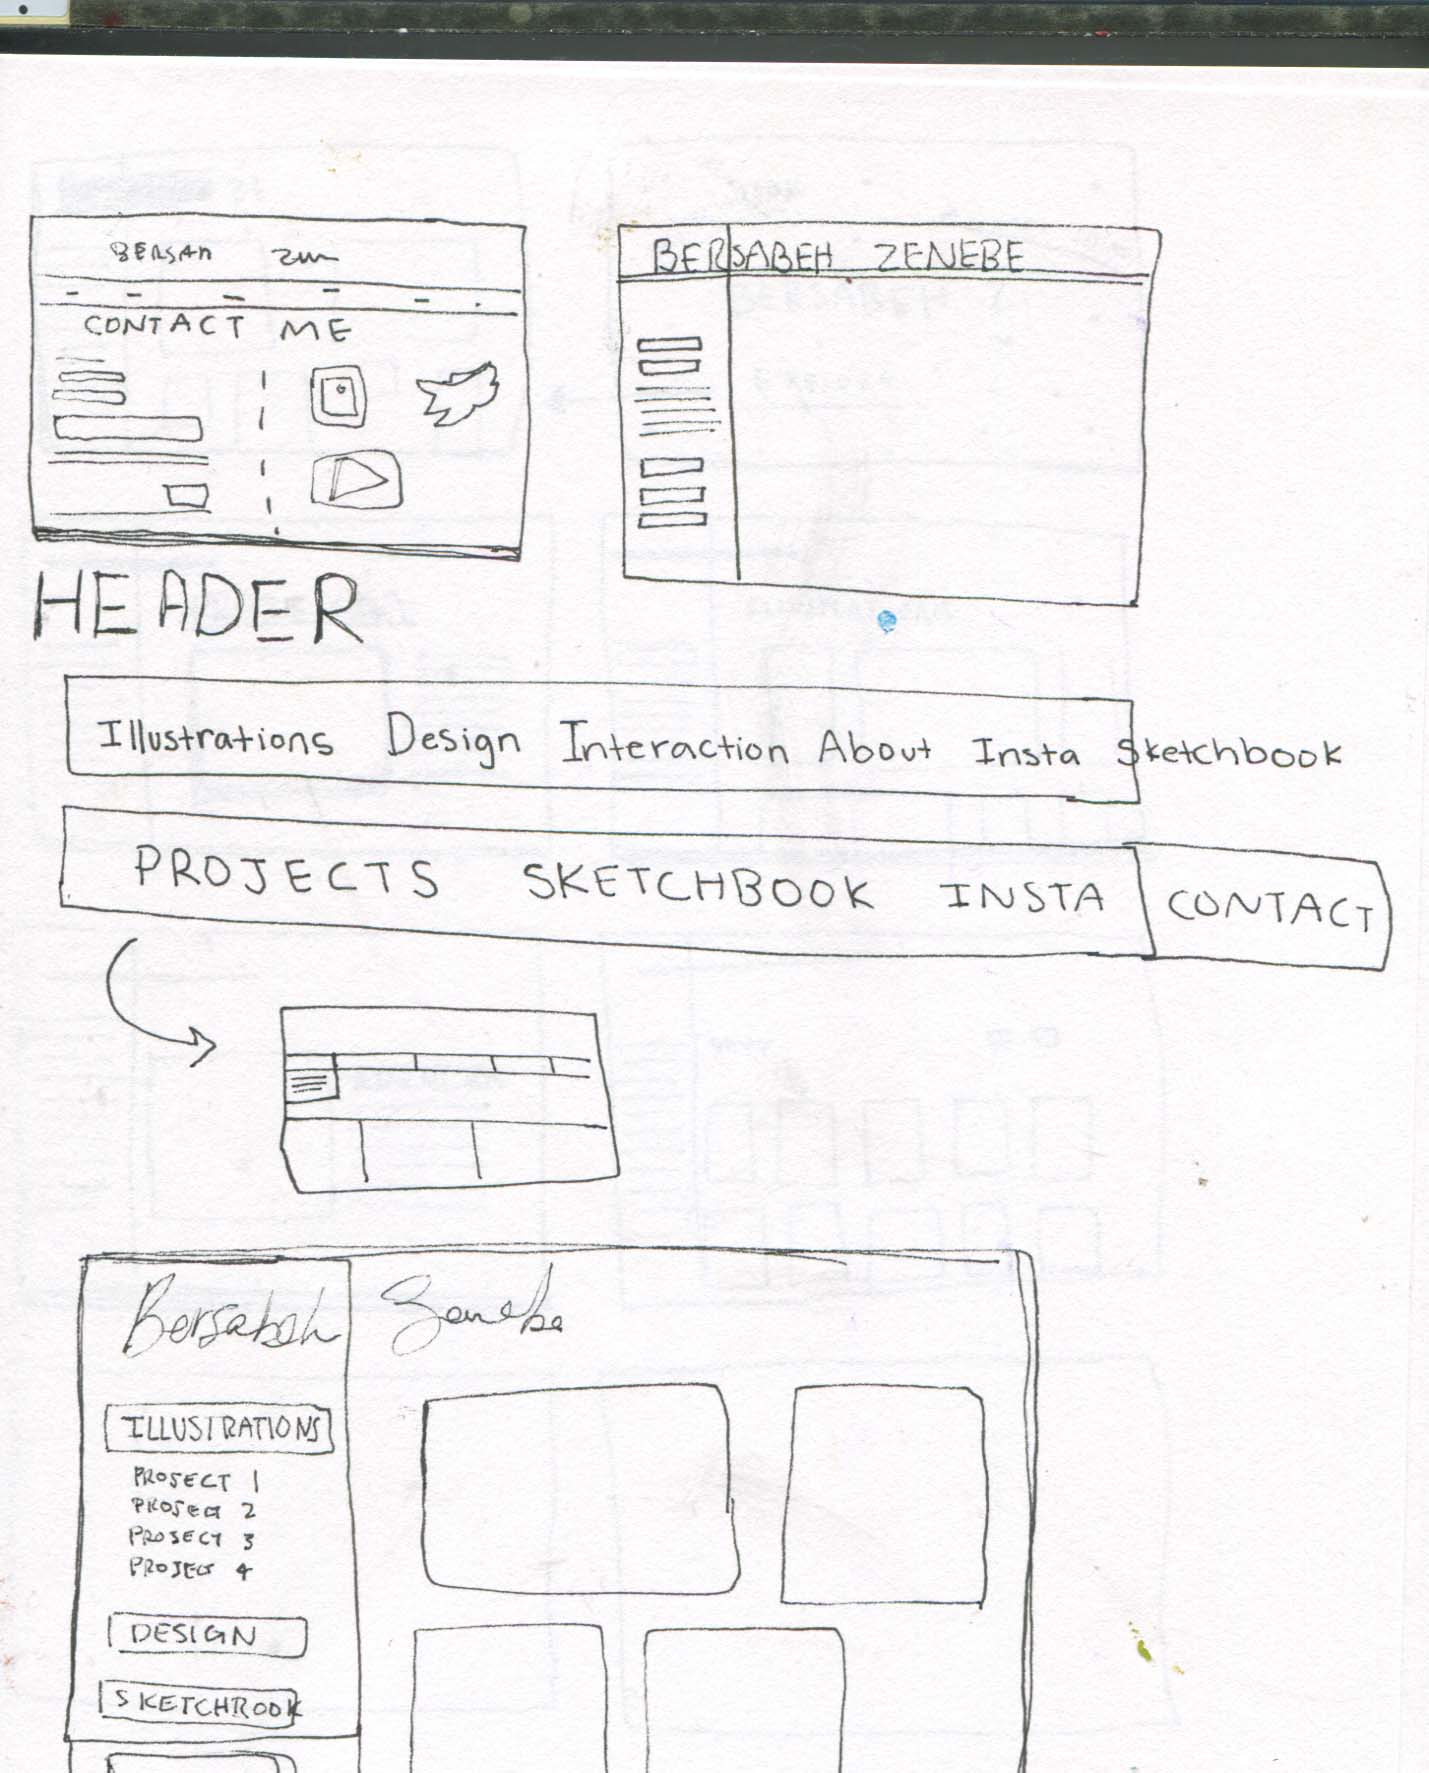 BERSAH
BERSABEH ZENEBE
CONTACT ME
HEADER
Illustrations Design Interaction About Insta Sketchbook
PROJECTS SKETCHBOOK INSTA CONTACT
Bersabeh Zenebe
ILLUSTRATIONS
PROJECT 1
PROJECT 2
PROJECT 3
PROJECT 4
DESIGN
SKETCHBOOK